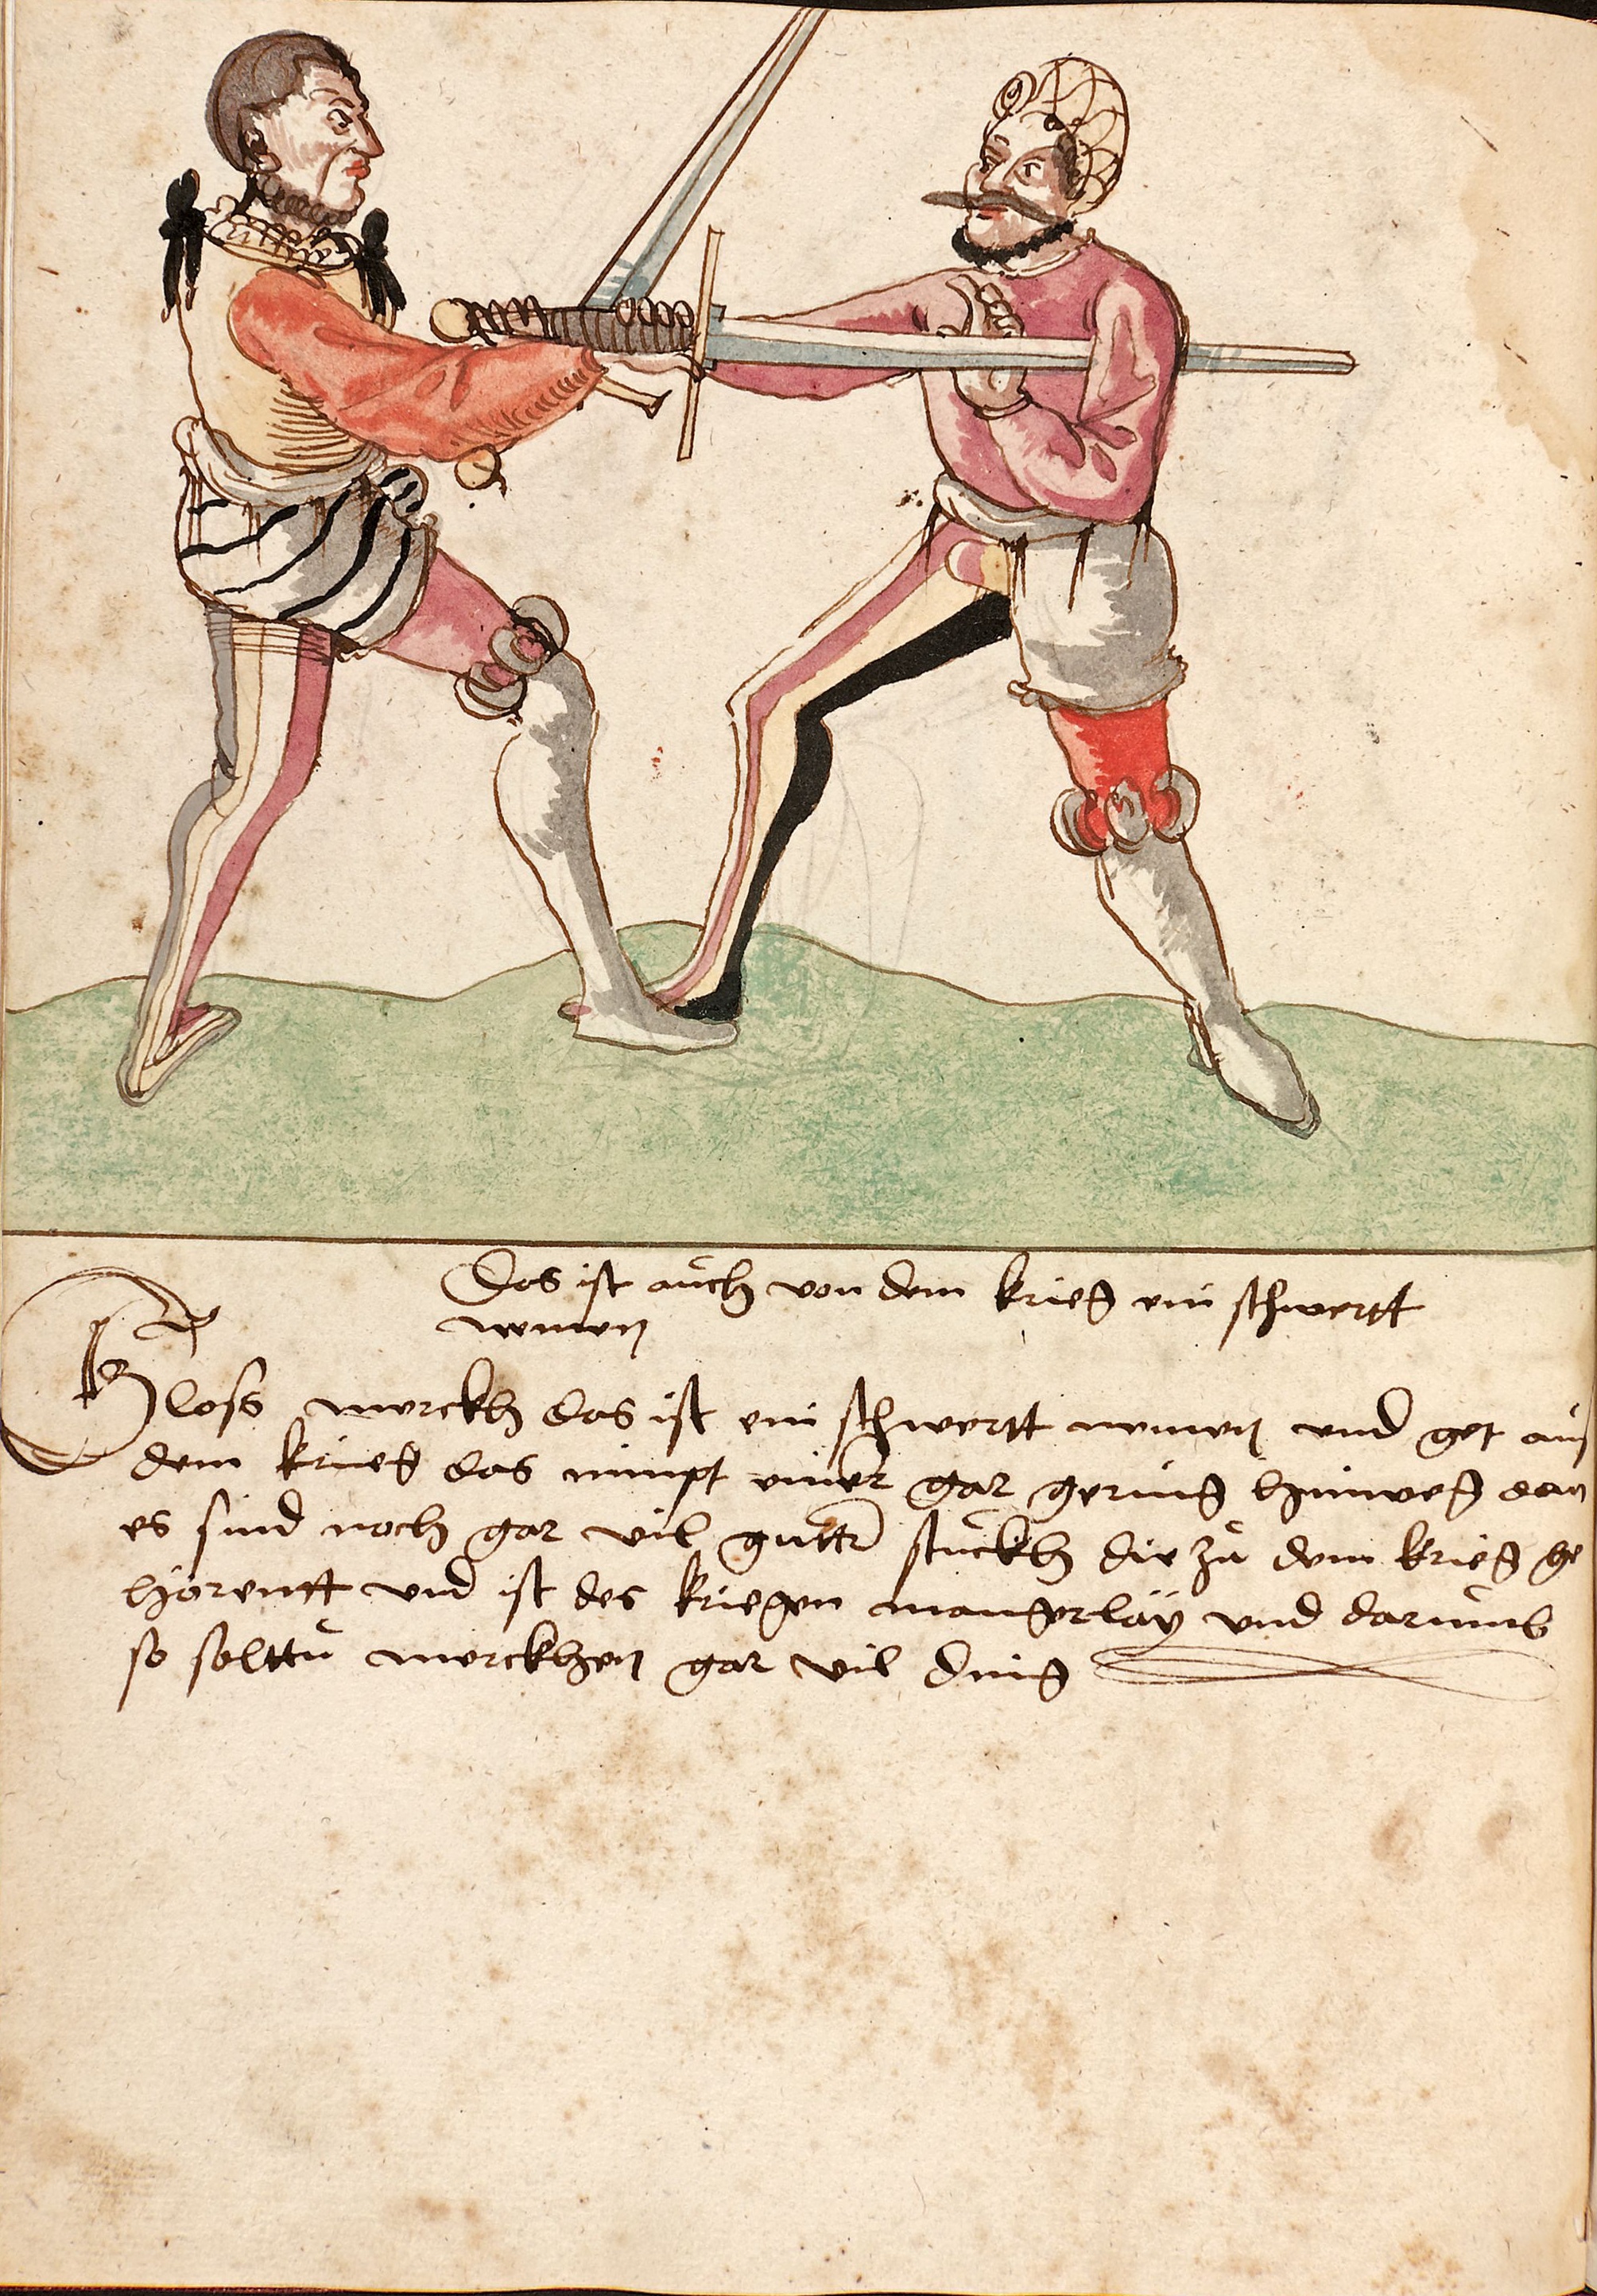 Das ist aůch von dem krieg ein schwertt
nemen
Gloss merckh das ist ein schwertt nemen und get aus
dem krieg das nimpt einer gar gering hinweg dan
es sind noch gar vil gutter stuckh die zů dem krieg ge
hörentt und ist des kriegen mangerlaÿ und darůmb
so solttů merckhen gar vil ding